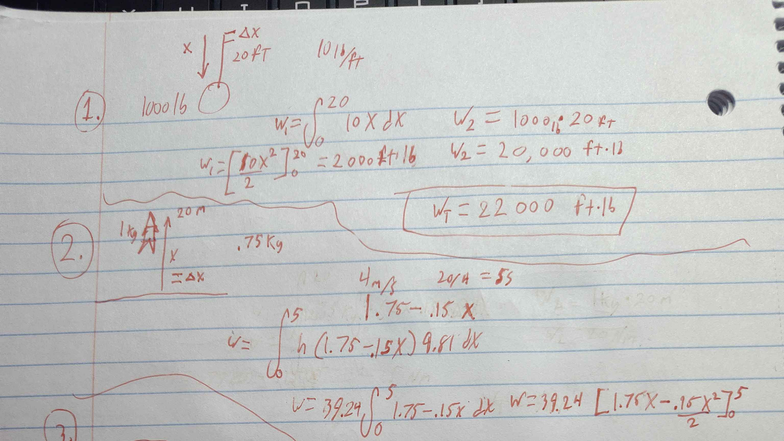 x ΔX
20 FT 10 lb/ft
1. 1000 lb
W₁ = ∫₀²⁰ 10X dX W₂ = 1000 lb · 20 ft
W₁ = [10X²/2]₀²⁰ = 2000 ft·lb W₂ = 20,000 ft·lb
W_T = 22 000 ft·lb
2. 1 kg 20 m .75 Kg
x
= ΔX 4 m/s 20/4 = 5s
1.75 - .15 X
W = ∫₀⁵ h (1.75 - .15X) 9.81 dX
W = 39.24 ∫₀⁵ 1.75 - .15x dx W = 39.24 [1.75X - .15X²/2]₀⁵
3.